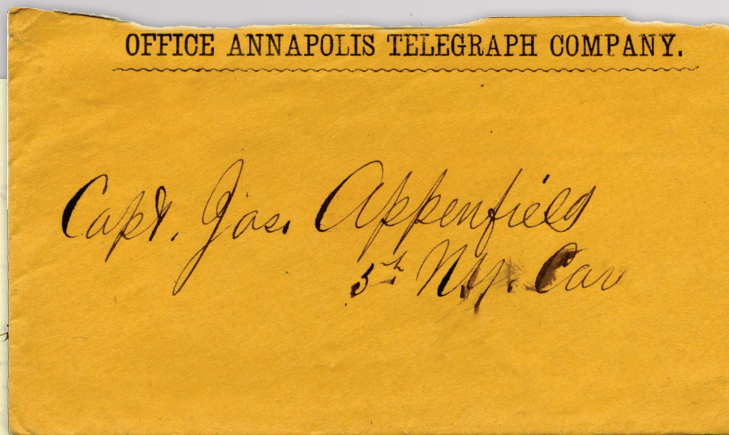 OFFICE ANNAPOLIS TELEGRAPH COMPANY.
Capt. Jas. Appenfield
5th N.Y. Cav